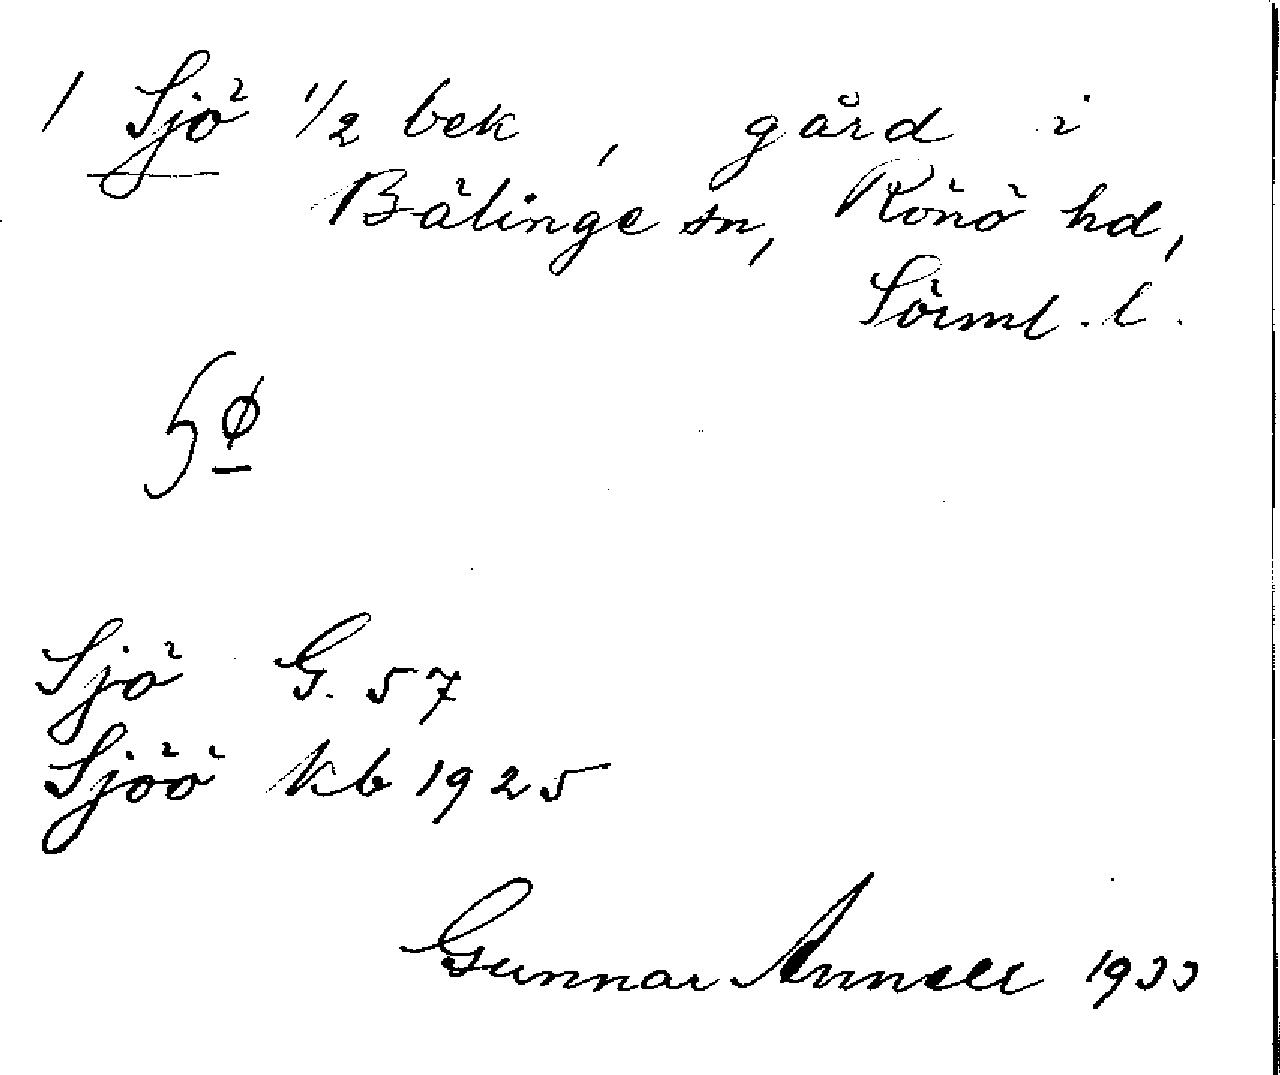 / Sjö 1/2 bek, gård i
Bälinge sn, Rönö hd,
Sörml. l.
Sjö G. 57
Sjöö kb 1925
Gunnar Annell 1933